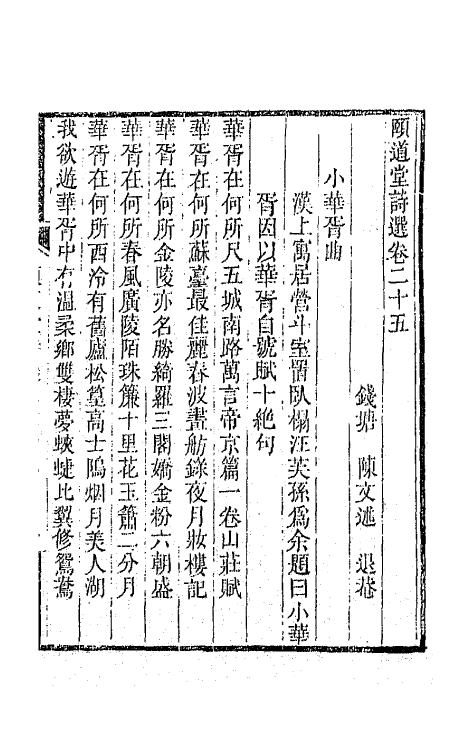 頤道堂詩選卷二十五
錢塘　陳文述　退菴
小華胥曲
漢上寓居營斗室爲臥榻汪芙孫爲余題曰小華
胥因以華胥自號賦十絶句
華胥在何所尺五城南路萬言帝京篇一卷山莊賦
華胥在何所蘇臺最佳麗春波畫舫錄夜月妝樓記
華胥在何所金陵亦名勝綺羅三閣嬌金粉六朝盛
華胥在何所春風廣陵陌珠簾十里花玉簫二分月
華胥在何所西泠有舊廬松篁高士塢烟月美人湖
我欲遊華胥中有溫柔鄉雙棲夢蛺蝶比翼修鴛鴦